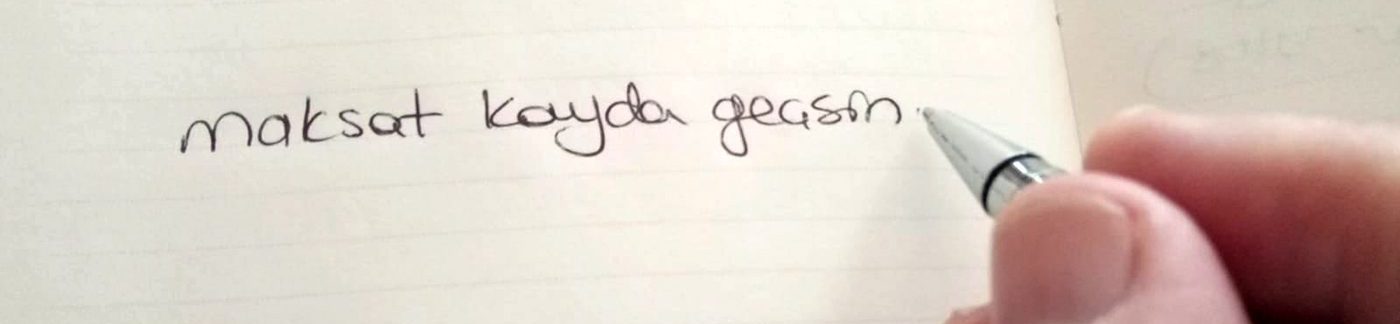 maksat kayda geçsin.